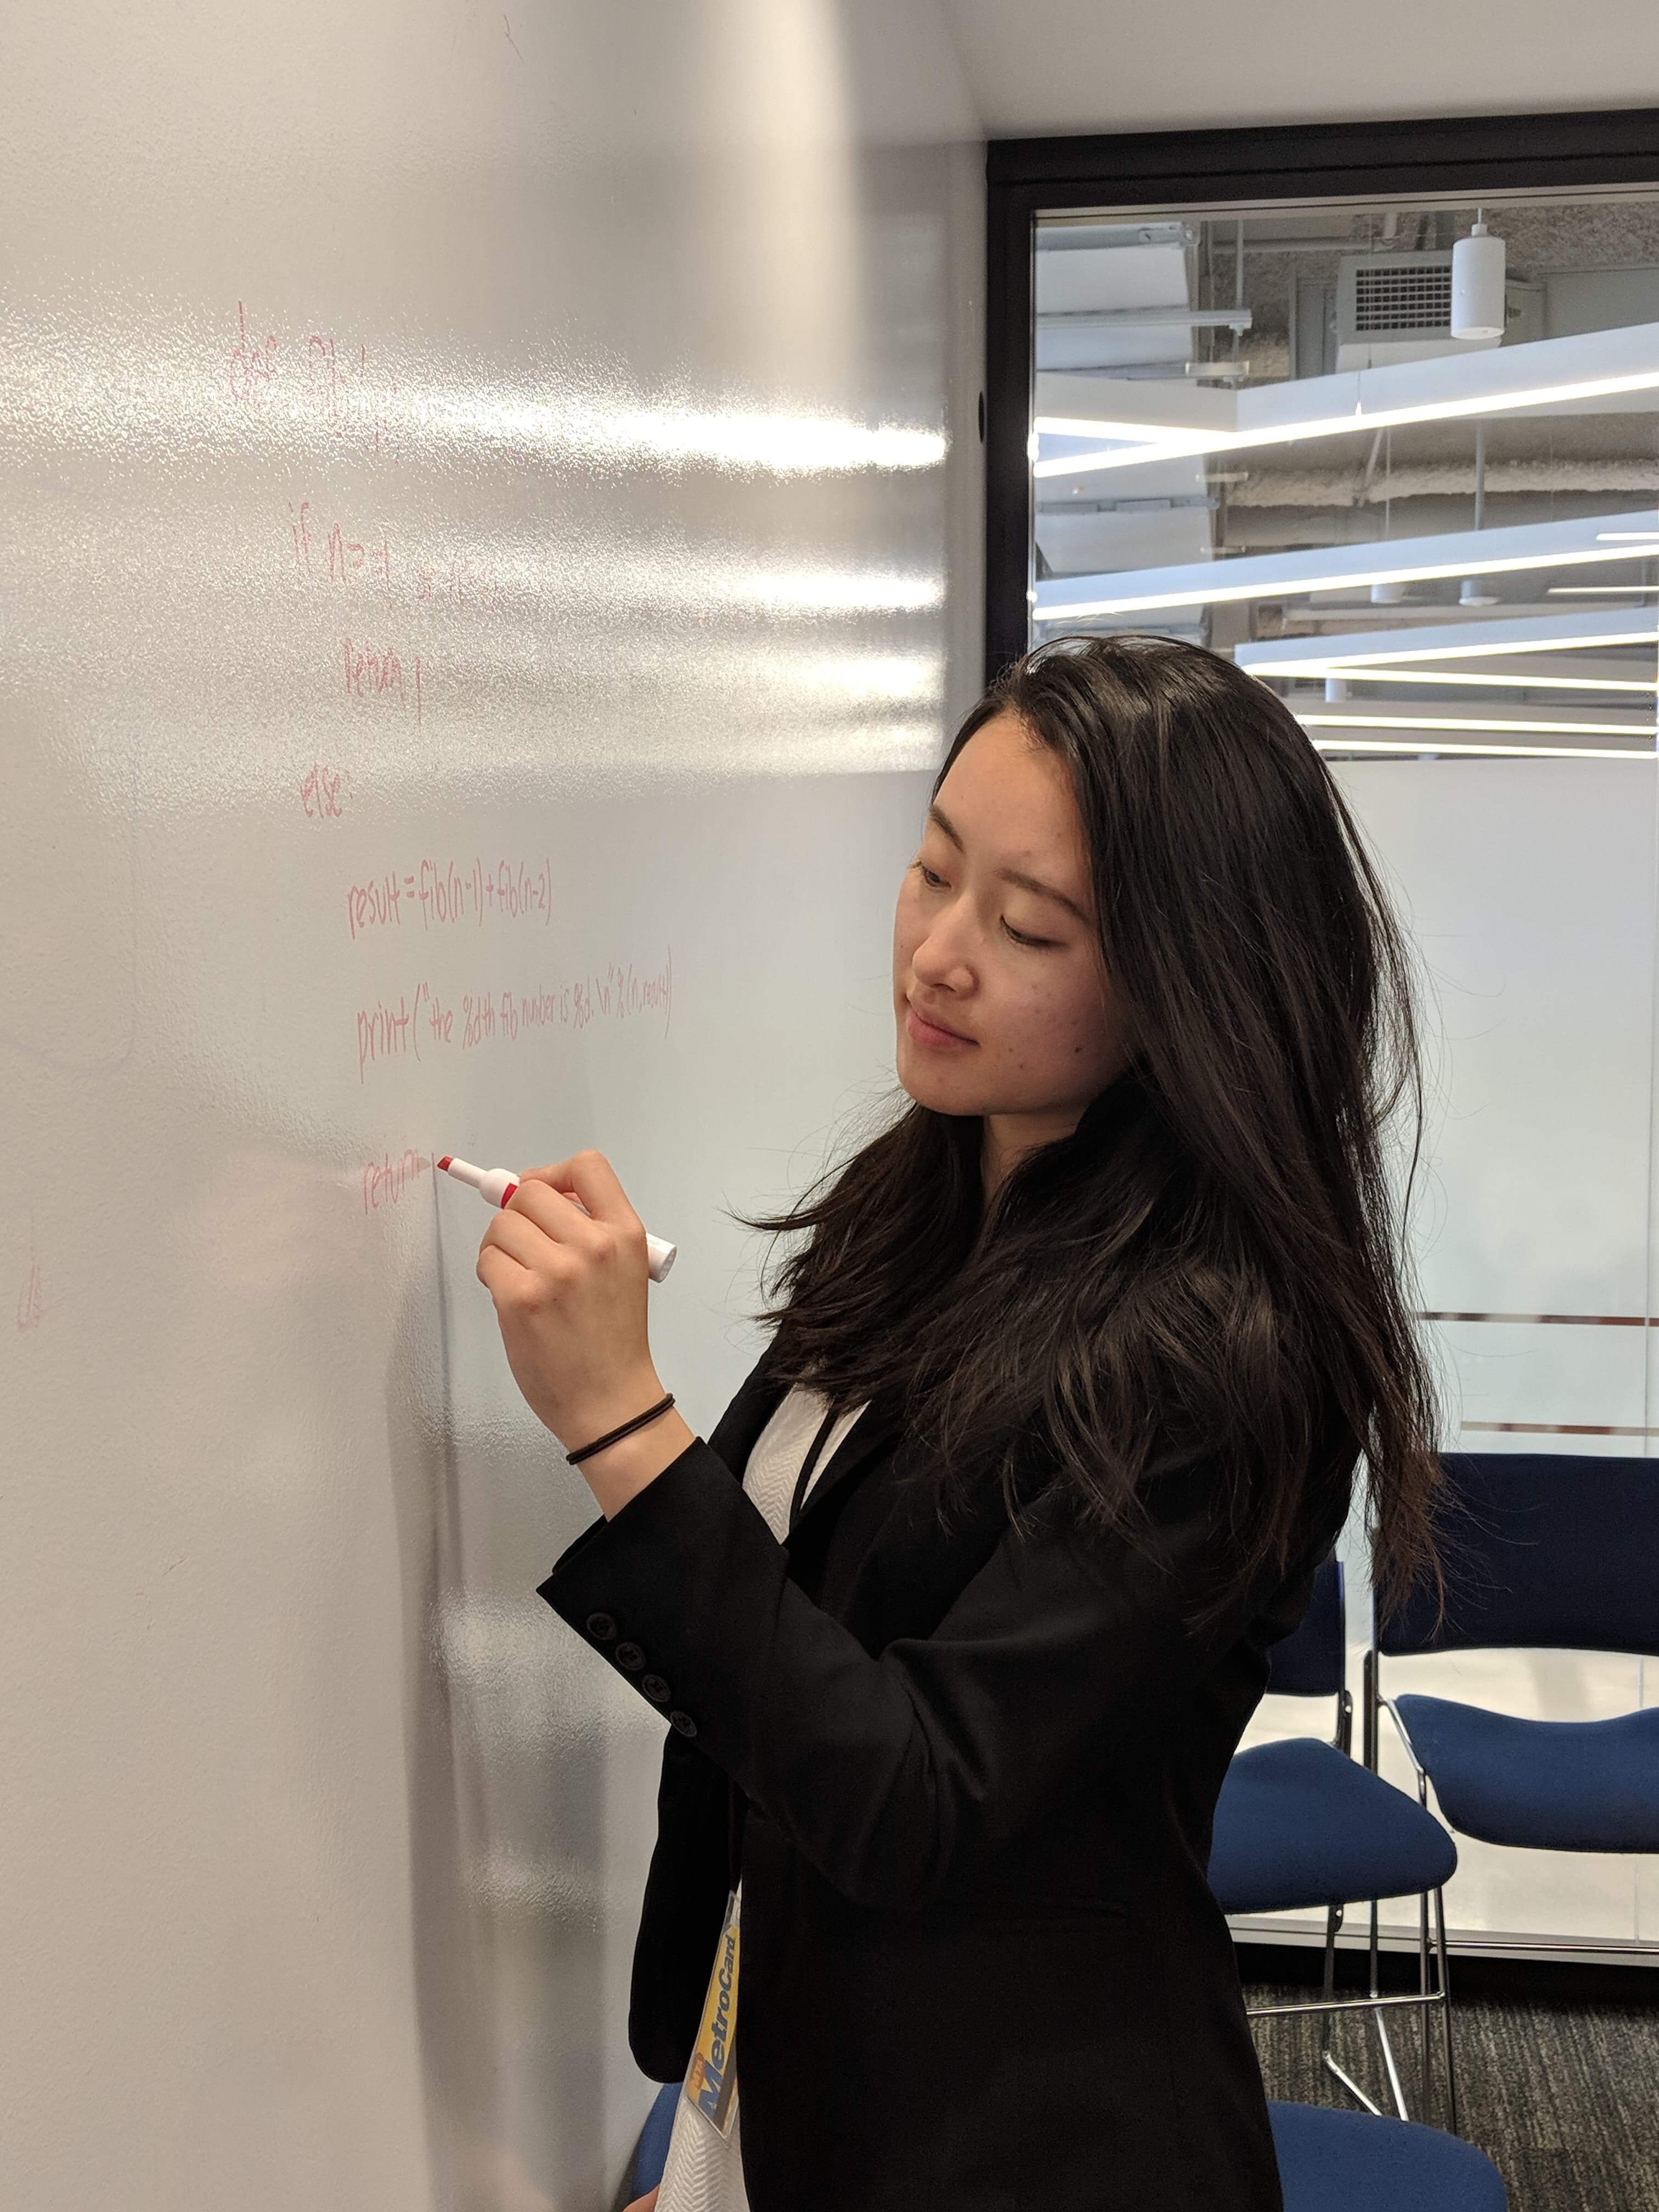 def
if n==1
return 1
else:
result=fib(n-1)+fib(n-2)
print("the %dth fib number is %d.\n"%(n,result)
return
MTA
MetroCard